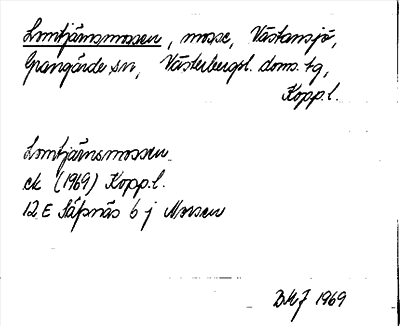 Lomtjärnsmossen, mosse, Västansjö,
Grangärde sn, Västerbergsl. doms. tg,
Kopp.l.
Lomtjärnsmossen
ek (1969) Kopp.l.
12E Säfsnäs 6 j Mossen
1969